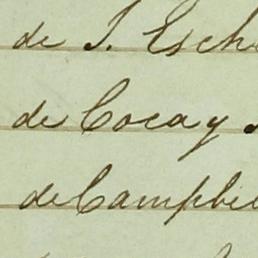 de J. Esch
de Cocay.
de Campbe